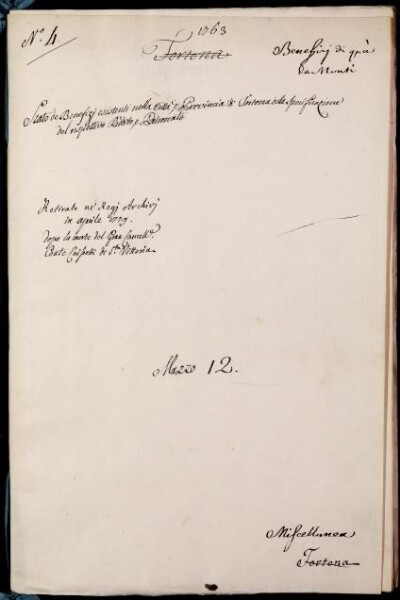 Nº. 4
1763
Tortona
Benefizj di quà
da Monti
Stato de Benefizj esistenti nella Città, e Provincia di Tortona colla specificazione
del rispettivo Reddito, e Patronato
Retirate ne' Regj Archivj
in aprile 1789.
dopo la morte del Gran Cancell.e
Conte Caissotti di S.ta Vittoria
Mazzo 12.
Miscellanea
Tortona